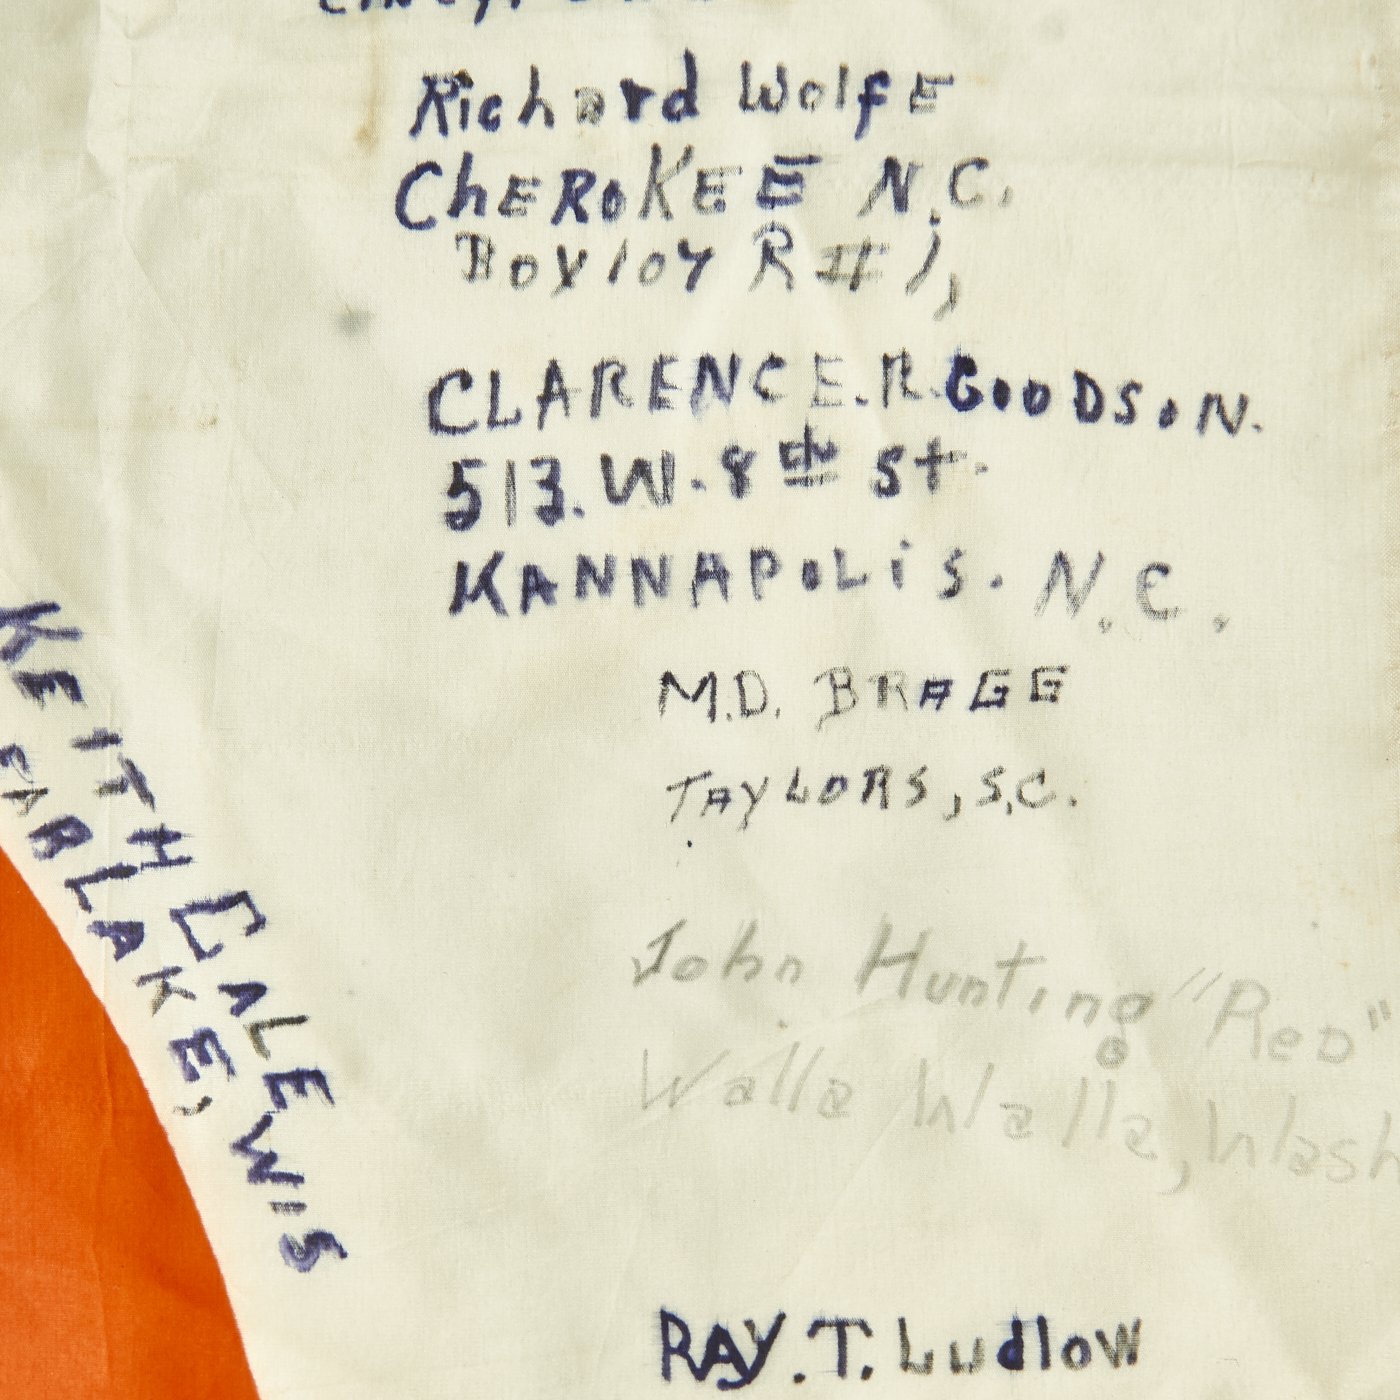 Richard Wolfe
CHEROKEE N.C.
R # 1,
CLARENCE. R. GOODSON.
513. W. 8th St.
KANNAPOLiS. N.C.
M.D. BRAGG
TAYLORS, S.C.
John Hunting "RED"
Walla Walla, Wash
RAY. T. Ludlow
KEITH CALE
EARLAKE, WIS